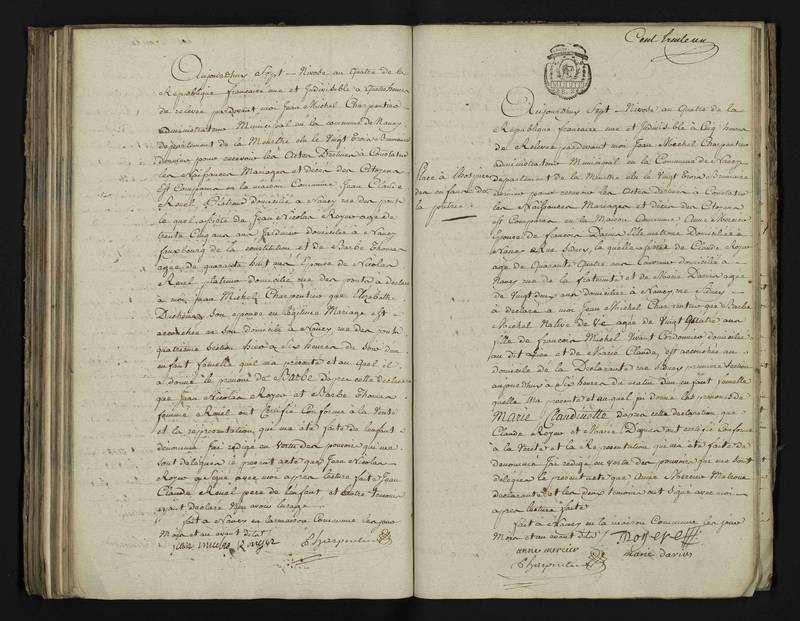 Aujourd'huy Sept Nivose an Quatre de la
République française une et Indivisible à quatre heures
de relevée pardevant moi Jean Michel Charpentier
administrateur Municipal en la commune de Nancy
département de la Meurthe élu le Vingt Trois Brumaire
dernier pour recevoir les Actes Destinés à Constater
les Naissances Mariages et décès des Citoyens
Est Comparu en la maison Commune Jean Claude
domicilié à Nancy rue des ponts
le quel assisté de Jean Nicolas Royer agé de
trente Cinq ans Jardinier domicilié à Nancy
fauxbourg de la constitution et de Barbe Thomas
agée de quarante huit ans Epouse de Nicolas
domicilié rue des ponts a déclaré
à moi Jean Michel Charpentier que Elizabeth
son epouse en légitime Mariage est
accouchée en son domicile à Nancy rue des ponts
quatrième Section à Six heures du Soir d'un
enfant femelle qu'il m'a présenté et au quel il
a donné le prénom de Barbe d'après cette déclaration
que Jean Nicolas Royer et Barbe Thomas
femme ont Certifié Conforme à la Vérité
et la représentation qui m'a été faite de l'enfant
dénommé J'ai rédigé en vertu des pouvoirs qui me
sont délégués le présent acte que Jean Nicolas
Royer a Signé avec moi après lecture faite Jean
Claude père de l'enfant et l'autre Temoin
ayant déclaré n'en avoir l'usage
fait à Nancy en la maison Commune les jour
Mois et an avant dits
jean nicolas Royer
Charpentier
Cent trente un
Place à
des enfans de
la patrie
MINUTE
Aujourd'huy Sept Nivose an Quatre de la
République francaise une et Indivisible à Cinq heures
de Relevée pardevant moi Jean Michel Charpentier
administrateur Municipal en la Commune de Nancy
département de la Meurthe élu le Vingt Trois Brumaire
dernier pour recevoir les Actes Destinés à Constater
les Naissances Mariages et décès des Citoyens
Est Comparue en la Maison Commune Anne Mercier
Epouse de francois Matrone Domiciliée à
Nancy Rue la quelle assistée de Claude Royer
agé de Quarante Quatre ans domicilié à
Nancy rue de la fraternité et de Marie Darius agée
de Vingt deux ans domiciliée à Nancy rue
a déclaré à moi Jean Michel Charpentier que Barbe
Michel Native de agée de Vingt Quatre ans
fille de francois Michel Vivant Cordonnier domicilié
au dit Lieu et de Marie Claude, est accouchée au
domicile de la Déclarante première Section
aujourd'huy à Six heures du matin d'un enfant femelle
quelle m'a présenté et au quel a donné les prénoms de
Marie Claudinotte d'après cette déclaration que
Claude Royer et Marie Darius ont certifié Conforme
à la Vérité et la Représentation qui m'a été faite de
dénommée J'ai rédigé en vertu des pouvoirs qui me sont
délégués le présent acte que Anne Mercier Matrone
déclarante et les deux témoins ont Signé avec moi
après lecture faite
fait à Nancy en la maison Commune les jour
Mois et an avant dits
anne mercier
marie darius
Charpentier